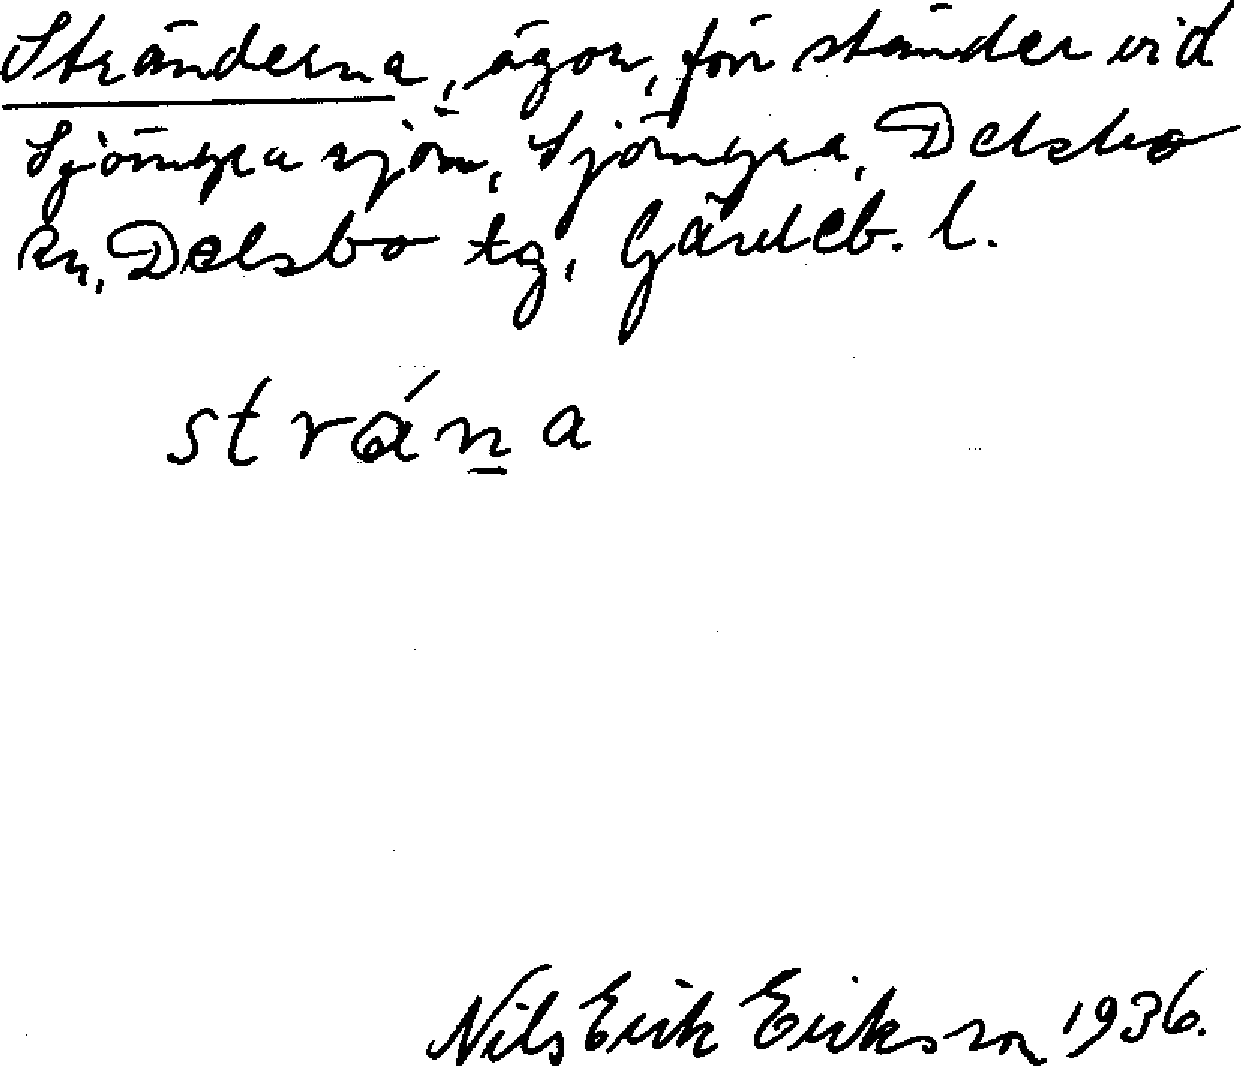 Stränderna, ägor, för ständer vid
Sjömyra sjön, Sjömyra, Delsbo
sn, Delsbo tg, Gävleb. l.
strána
Nils Erik Eriksson 1936.